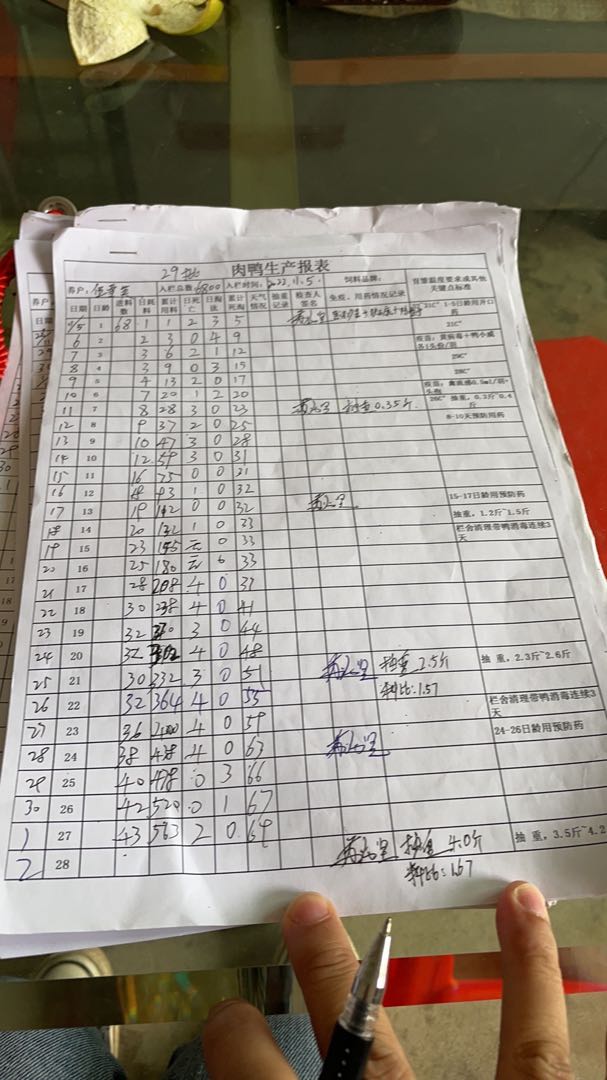 29批 肉鸭生产报表
养户: 入栏总数 6800 入栏时间: 2022.11.5. 饲料品牌: 育雏温度要求或其他关键点标准
日期 日龄 进料数 日耗料 累计用料 日死亡 日淘汰 累计死淘 天气情况 抽重记录 检查人签名 免疫、用药情况记录
11/5 1 68 1 1 2 3 5 31C° 1-5日龄用开口药
6 2 2 3 0 4 9 31C°
7 3 3 6 2 1 12 疫苗:黄病毒+鸭小威各1头份/羽
8 4 3 9 0 3 15 29C°
9 5 4 13 2 0 17 28C°
10 6 7 20 2 20 疫苗:禽流感0.5ml/羽+头孢
11 7 8 28 3 0 23 抽重0.35斤 26C° 抽重,0.3斤~0.4斤
12 8 9 37 2 0 25 8-10天预防用药
13 9 10 47 3 0 28
14 10 12 59 3 0 31
15 11 16 75 0 0 31
16 12 18 93 1 0 32 15-17日龄用预防药
17 13 19 112 0 0 32 抽重,1.2斤~1.5斤
18 14 20 132 1 0 33 栏舍清理带鸭消毒连续3天
19 15 23 155 无 0 33
20 16 25 180 无 0 33
21 17 28 208 4 0 37
22 18 30 238 4 0 41
23 19 32 270 3 0 44
24 20 32 302 4 0 48 抽重 2.5斤 抽重,2.3斤~2.6斤
25 21 30 332 3 0 51 料比:1.57
26 22 32 364 4 0 55 栏舍清理带鸭消毒连续3天
27 23 36 400 4 0 59 24-26日龄用预防药
28 24 38 438 4 0 63
29 25 40 478 0 3 66
30 26 42 520 0 1 67
1 27 43 563 2 0 69 抽重,3.5斤~4.2
2 28 抽重 4.0斤
料比:1.67